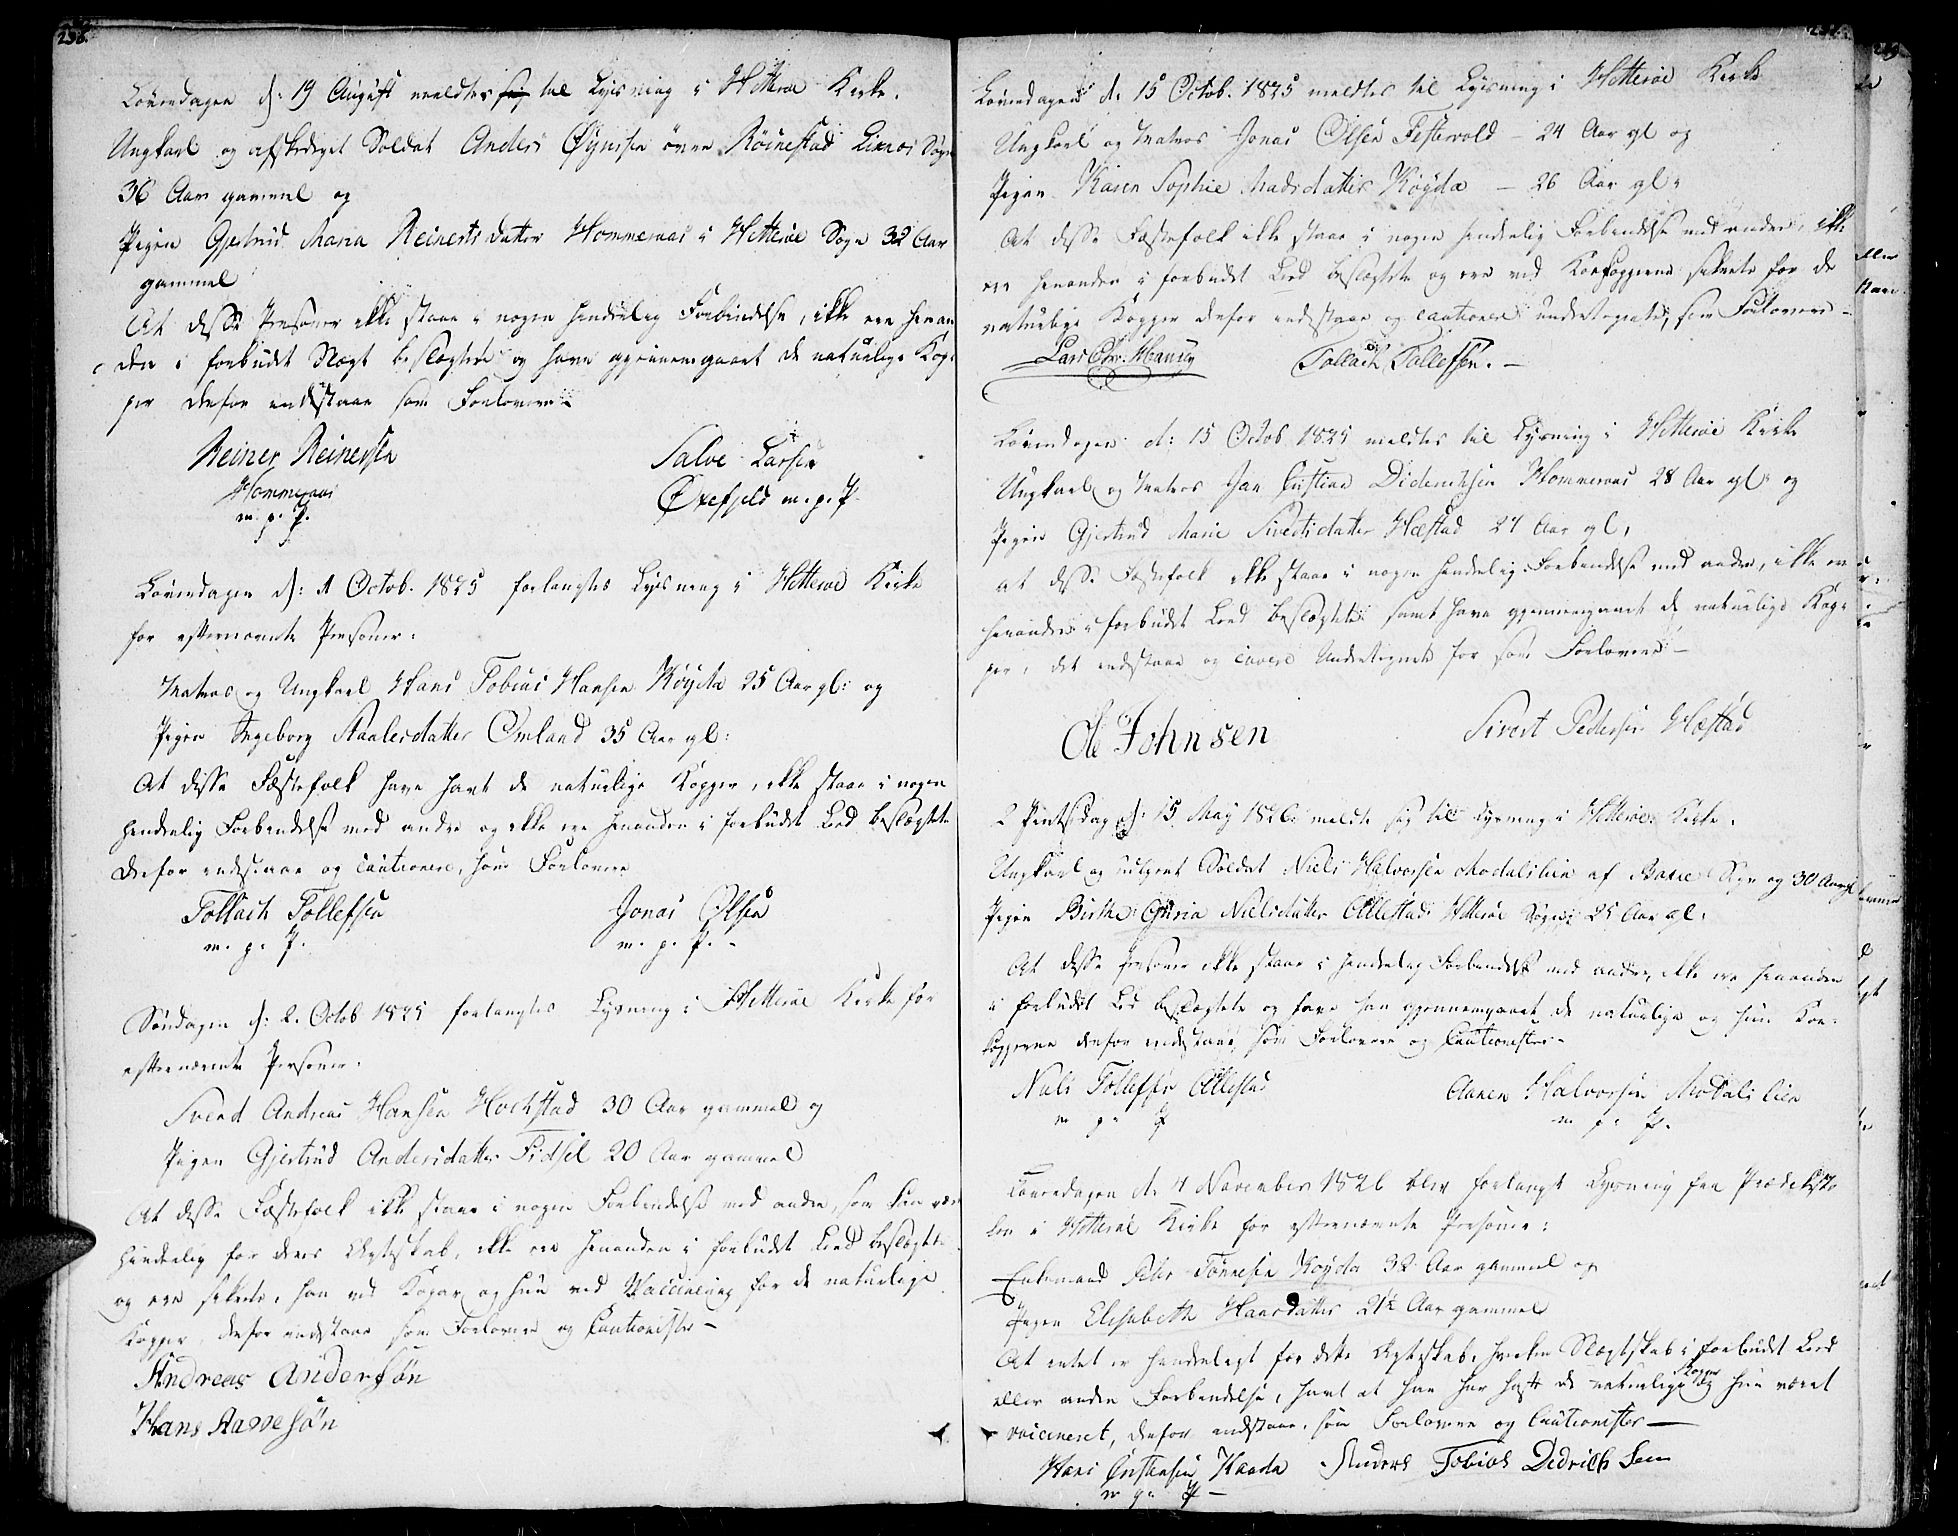 238.
Løverdagen d: 19 August meldtes sig til Lysning i Hitterøe Kirke.
Ungkarl og afskediget Soldat Anders Øynesen øvre Røinestad Liknes Sogn
36 Aar gammel og
Pigen Gjertrud Maria Reinertsdatter Hommenaas i Hitterøe Sogn 32 Aar
gammel
At disse Personer ikke staae i nogen hinderlig Forbindelse, ikke ere hinan
den i forbudt Slægt beslægtede og have gjennemgaaet de naturlige Kop-
per derfor indestaae som Forlovere
Reiner Reinersen Salve Larsen
Hommenaas Øxefjeld m.p.P.
m. p. P.
Løverdagen d: 1 Octob. 1825 forlangtes Lysning i Hitterøe Kirke
for efternævnte Personer:
Matros og Ungkarl Hans Tobias Hansen Køyda 25 Aar gl: og
Pigen Ingeborg Staalesdatter Omland 35 Aar gl:
At disse Fæstefolk have havt de naturlige Kopper, ikke staae i nogen
hinderlig Forbindelse med andre og ikke ere hinanden i forbudt Led beslægtede
derfor indestaae og cautionere, som Forlovere
Tollach Tollefsen Jonas Olsen
m. p. P. m. p. P.
Søndagen d: 2. Octob 1825 forlangtes Lysning i Hitterøe Kirke for
efternævnte Personer.
Svend Andreas Hansen Hochstad 30 Aar gammel og
Pigen Gjertrud Andersdatter Fidsel 20 Aar gammel
At disse Fæstefolk ikke staae i nogen Forbindelse med andre, som kan være
hinderlig for deres Ægteskab, ikke ere hinanden i forbudt Led beslægtede
og ere sikrede, han ved Kopar og hun ved Vaccinering for de naturlige
Kopper, derfor indestaae som Forlovere og Cautionister
Andreas Andersøn
Hans Aanesøn
Løverdagen d: 15 Octob. 1825 meldtes til Lysning i Hitterøe Kirke
Ungkarl og Matros Jonas Olsen Festervold - 24 Aar gl og
Pigen Karen Sophie Madsdatter Køyda - 26 Aar gl.
At disse Fæstefolk ikke staae i nogen hinderlig Forbindelse med andre, ikke
ere hinanden i forbudt Led beslægtede og ere ved Koekopperne sikrede for de
naturlige Kopper derfor indestaae og cautionere undertegnede, som Forlovere
Lars Chr. Tollach Tollefsen.
Løverdagen d: 15 Octob 1825 meldtes til Lysning i Hitterøe Kirke
Ungkarl og Matros Jan Christian Didrichsen Hommenaas 28 Aar gl. og
Pigen Gjertrud Marie Sivertsdatter Hæstad 27 Aar gl.
at disse Fæstefolk ikke staae i nogen hinderlig Forbindelse med andre, ikke ere
hinanden i forbudt Led beslægtede samt have gjennemgaaet de naturlige Kop-
per, det indestaae og cavere Undertegnede for som Forlovere
Ole Johnsen Sivert Pedersen Hæstad
2 Pintsdag d: 15 May 1826 meldte sig til Lysning i Hitterøe Kirke.
Ungkarl og udtjent Soldat Niels Halvorsen Modalslien af Bakke Sogn og 30 Aar gl
Pigen Birthe Guria Nielsdatter Ollestad Hitterøe Sogn 25 Aar gl.
At disse Personer ikke staae i hinderlig Forbindelse med andre, ikke ere hinanden
i forbudt Led beslægtede og have han gjennemgaaet de naturlige og hun Koe-
kopperne derfor indestaae, som Forlovere og Cautionister
Niels Tollefsen Ollestad Aanen Halvorsen Modalslien
m p. P m. p. P.
Løverdagen d. 4 November 1826 blev forlangt Lysning fra Prædikesto
len i Hitterøe Kirke for efternævnte Personer:
Enkemand Peder Tønnesen Køyda 32 Aar gammel og
Pigen Elisabeth Hansdatter 21½ Aar gammel
At intet er hinderligt for dette Ægteskab, hverken Slægtskab i forbudt Led
eller anden Forbindelse, samt at han har haft de naturlige Kopper og hun været
vaccineret, derfor indestaae, som Forlovere og Cautionister
Hans Christensen Haada Anders Tobias Didrichsen
m p. P